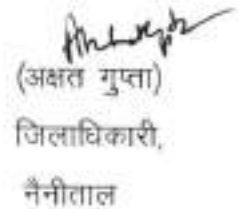 (अक्षत गुप्ता)
जिलाधिकारी,
नैनीताल